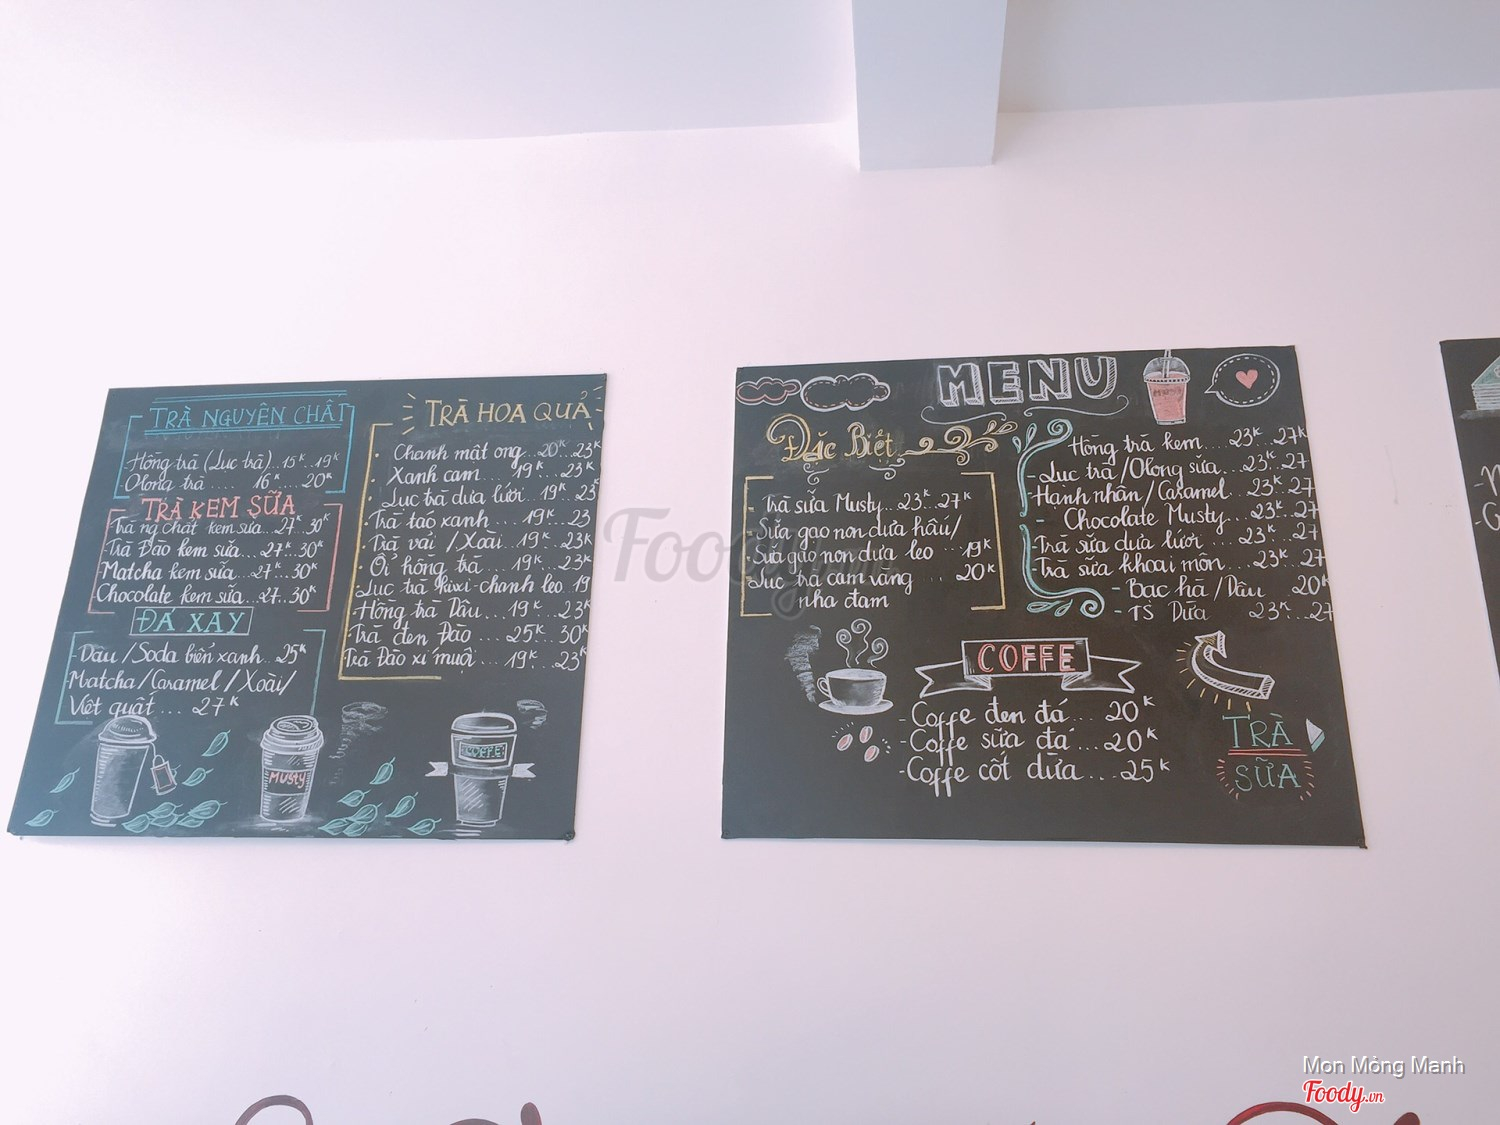 TRÀ NGUYÊN CHẤT
Hồng trà (Lục trà)..15K..19K
Olong trà .... 16K ... 20K
TRÀ KEM SỮA
Trà ng chất kem sữa..27K.30K
Trà Đào kem sữa...27K.30K
Matcha kem sữa..27K..30K
Chocolate kem sữa..27..30K
ĐÁ XAY
-Dâu/Soda biển xanh..25K
Matcha/Caramel/Xoài/
Việt quất ... 27K
TRÀ HOA QUẢ
Chanh mật ong 20K..23K
Xanh cam...19K...23K
Lục trà dưa lưới 19K..23
Trà táo xanh ... 19K...23
Trà vải /Xoài 19K...23K
Ổi hồng trà ...19K...23K
Lục trà kiwi-chanh leo..19
Hồng trà Dâu... 19K ..23K
Trà đen Đào ... 25K 30K
Trà Đào xí muội...19K..23K
Musty
COFFE
MENU
Musty
Đặc Biệt
Trà sữa Musty..23K..27K
-Sữa gạo non dưa hấu/
Sữa gạo non dưa leo ..19K
-Lục trà cam vàng ... 20K
nha đam
Hồng trà kem....23K...27K
-Lục trà/Olong sữa..23K..27
-Hạnh nhân/Caramel..23K 27
- Chocolate Musty...23K..
-Trà sữa dưa lưới ... 23K ..27
-Trà sữa khoai môn...23K..27
- Bạc hà/Dâu 20K
- TS Dừa 23K...27
COFFE
-Coffe đen đá... 20K
-Coffe sữa đá ...20K
-Coffe cốt dừa...25K
TRÀ
SỮA
Foody.vn
Mon Mỏng Manh
Foody.vn